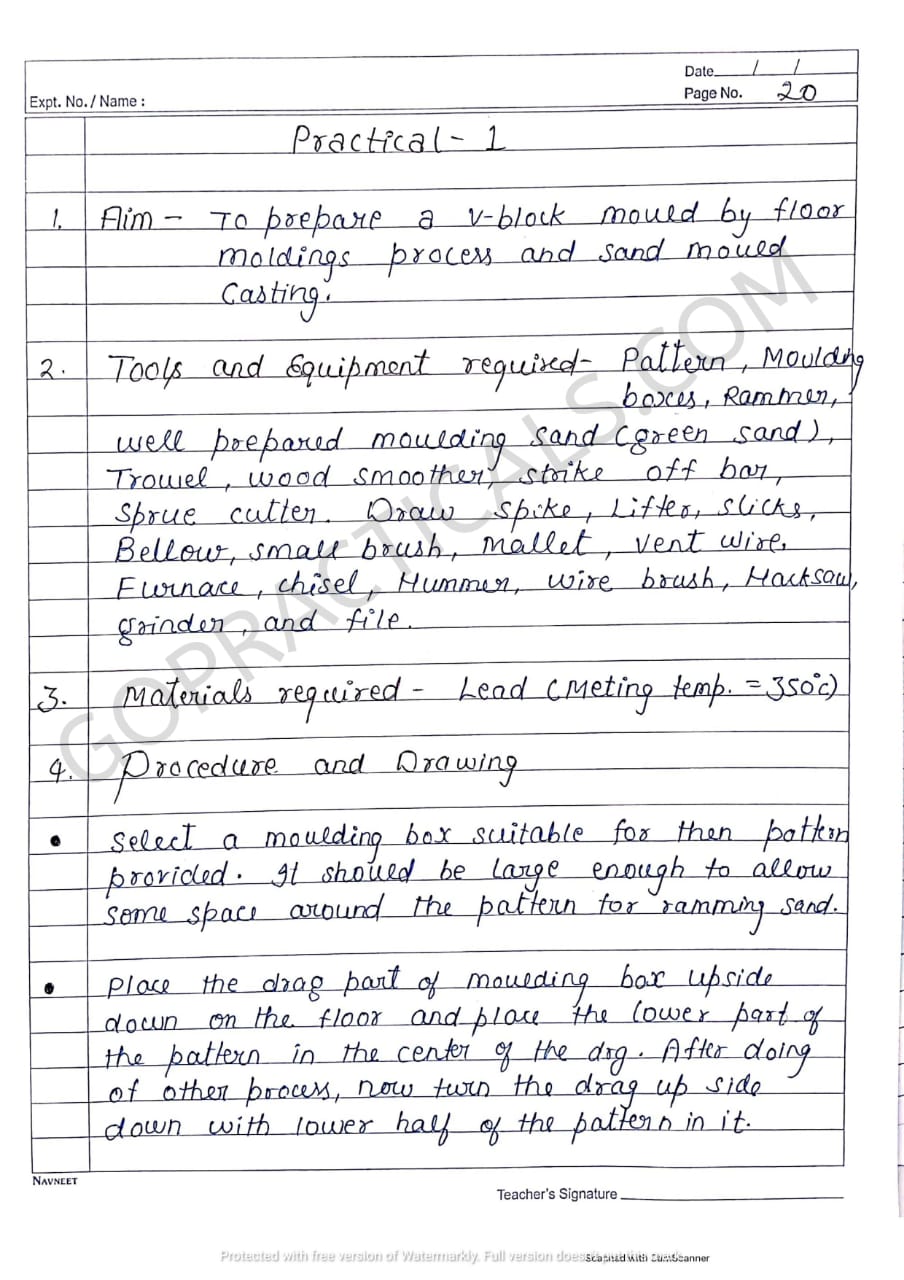 Date / /
Page No. 20
Expt. No. / Name :
Practical - 1
1. Aim - To prepare a V-block mould by floor
moldings process and sand mould
Casting.
2. Tools and Equipment required- Pattern, Moulding
boxes, Rammer,
well prepared moulding sand (green sand),
Trowel, wood smoother, strike off bar,
Sprue cutter. Draw Spike, Lifter, Slicks,
Bellow, small brush, Mallet, vent wire,
Furnace, chisel, Hummer, wire brush, Hacksaw,
grinder, and file.
3. Materials required - Lead (Meting temp. = 350°c)
4. Procedure and Drawing
• Select a moulding box suitable for then pattern
provided. It should be large enough to allow
some space around the pattern for ramming sand.
• Place the drag part of moulding box upside
down on the floor and place the lower part of
the pattern in the center of the drg. After doing
of other process, now turn the drag up side
down with lower half of the pattern in it.
NAVNEET
Teacher's Signature
GOPRACTICALS.COM
Protected with free version of Watermarkly. Full version does
Scanned with CamScanner